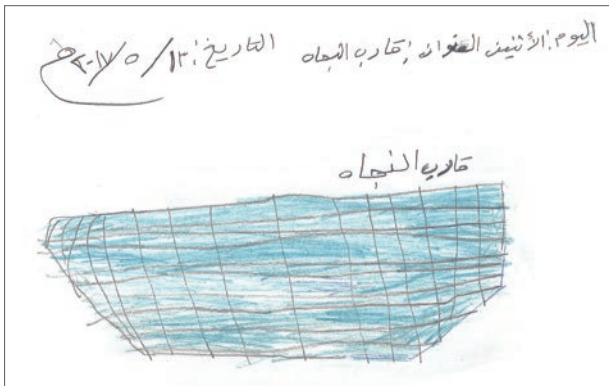 اليوم: الأثنين العنوان: قارب النجاه التاريخ: ١٣/٥/٢٠١٧م
قارب النجاه